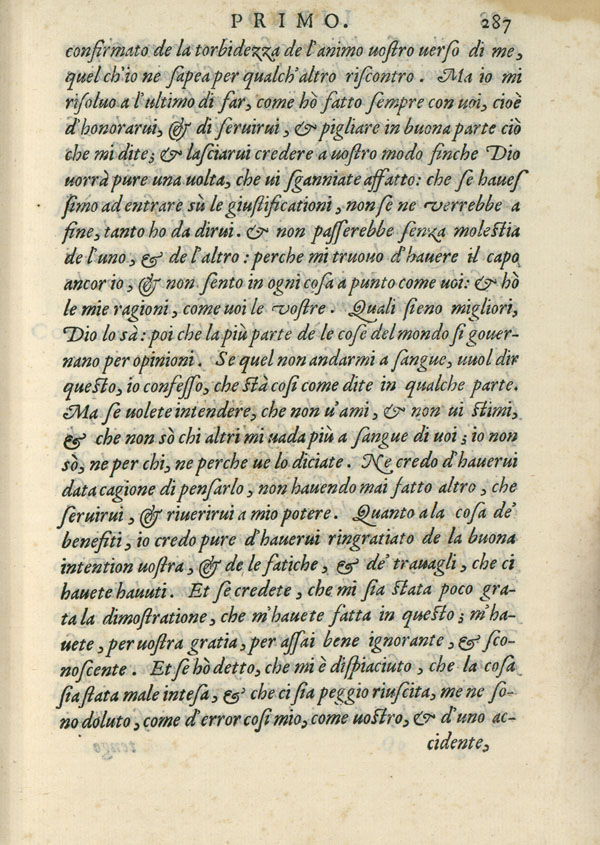 PRIMO. 287
confirmato de la torbidezza de l'animo uostro uerso di me,
quel ch'io ne sapea per qualch'altro riscontro. Ma io mi
risoluo a l'ultimo di far, come hò fatto sempre con uoi, cioè
d'honorarui, & di seruirui, & pigliare in buona parte ciò
che mi dite; & lasciarui credere a uostro modo finche Dio
uorrà pure una uolta, che ui sganniate affatto: che se haues
simo ad entrare sù le giustificationi, non se ne verrebbe a
fine, tanto ho da dirui. & non passerebbe senza molestia
de l'uno, & de l'altro: perche mi truouo d'hauere il capo
ancor io, & non sento in ogni cosa a punto come uoi: & hò
le mie ragioni, come uoi le vostre. Quali sieno migliori,
Dio lo sà: poi che la più parte de le cose del mondo si gouer-
nano per opinioni. Se quel non andarmi a sangue, uuol dir
questo, io confesso, che stà cosi come dite in qualche parte.
Ma se uolete intendere, che non u'ami, & non ui stimi,
& che non sò chi altri mi uada più a sangue di uoi; io non
sò, ne per chi, ne perche ue lo diciate. Ne credo d'hauerui
data cagione di pensarlo, non hauendo mai fatto altro, che
seruirui, & riuerirui a mio potere. Quanto a la cosa de'
benefiti, io credo pure d'hauerui ringratiato de la buona
intention uostra, & de le fatiche, & de' trauagli, che ci
hauete hauuti. Et se credete, che mi sia stata poco gra-
ta la dimostratione, che m'hauete fatta in questo; m'ha-
uete, per uostra gratia, per assai bene ignorante, & sco-
noscente. Et se hò detto, che mi è dispiaciuto, che la cosa
sia stata male intesa, & che ci sia peggio riuscita, me ne so-
no doluto, come d'error cosi mio, come uostro, & d'uno ac-
cidente,